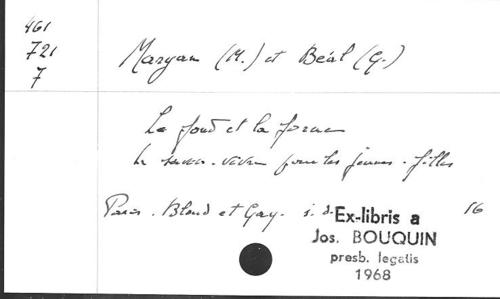 461
721
7
Maryan (M.) et Béal (G.)
Le fond et la forme
Le savoir-vivre pour les jeunes-filles
Paris. Bloud et Gay. s. d. 16
Ex-libris a
Jos. BOUQUIN
presb. legatis
1968